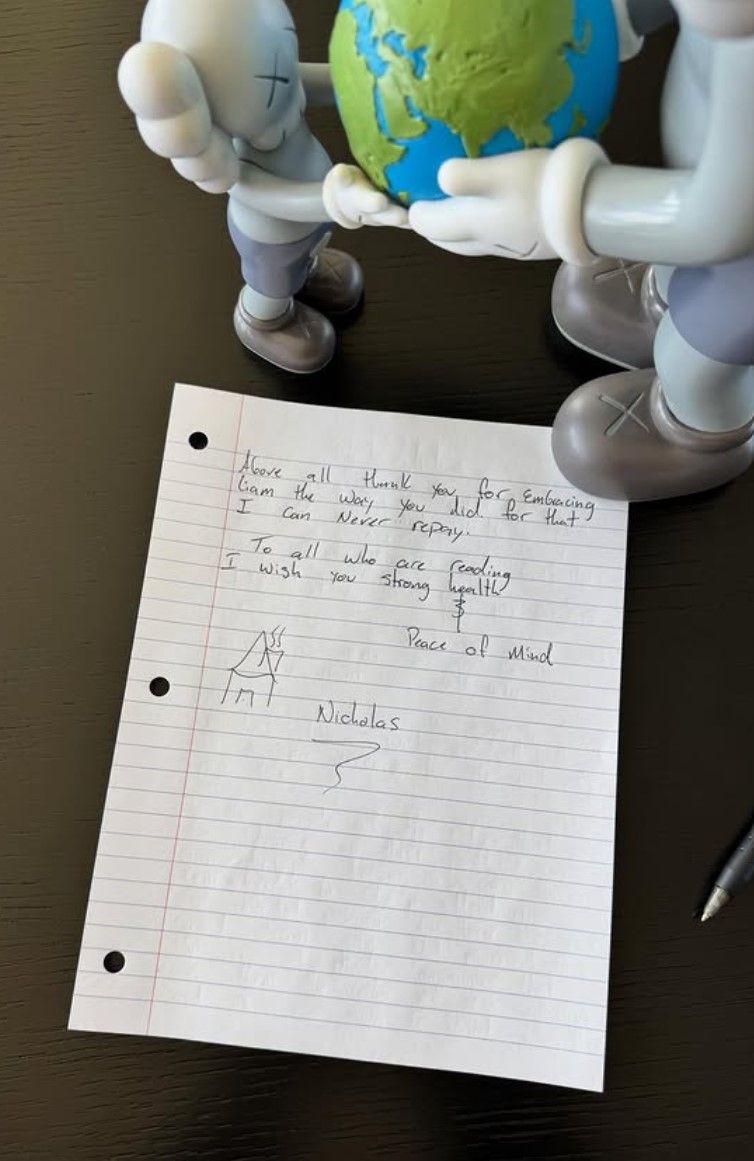 Above all thank you for Embracing
Liam the way you did for that
I can Never repay.
To all who are reading
I wish you strong health
&
Peace of Mind
Nicholas